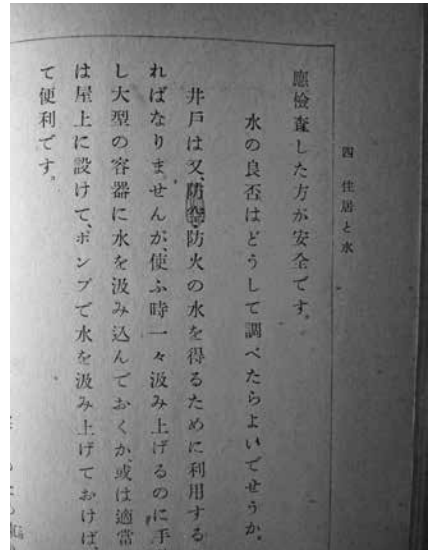 四 住居と水
應檢査した方が安全です。
水の良否はどうして調べたらよいでせうか。
井戸は又、防空防火の水を得るために利用する
ればなりませんが、使ふ時一々汲み上げるのに手
し大型の容器に水を汲み込んでおくか、或は適當
は屋上に設けて、ポンプで水を汲み上げておけば、
て便利です。